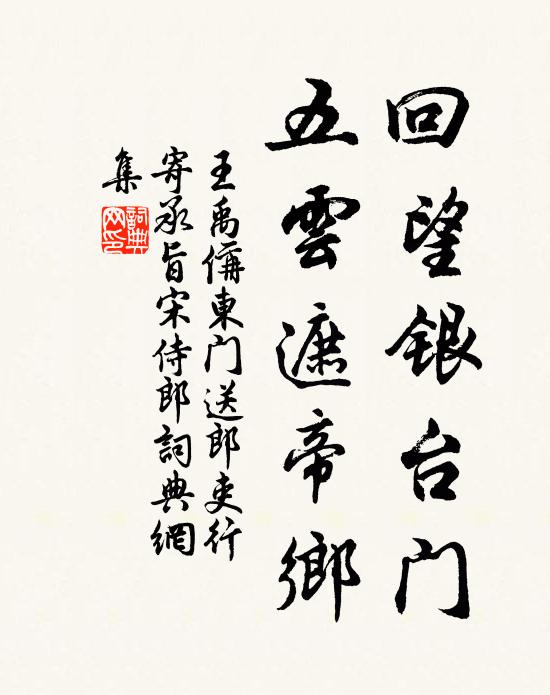 回望银台门
五雲遮帝鄉
王禹偁東门送郎吏行
寄承旨宋侍郎詞典網
集
詞典网印